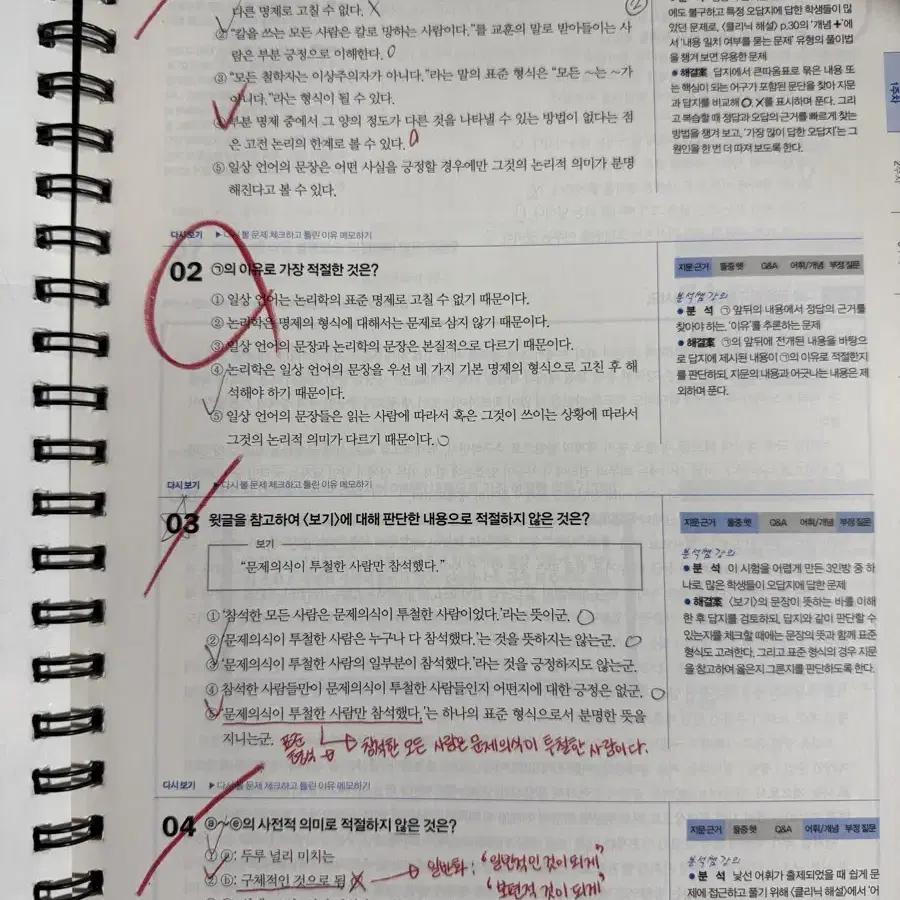 다른 명제로 고칠 수 없다. X
②
② "칼을 쓰는 모든 사람은 칼로 망하는 사람이다."를 교훈의 말로 받아들이는 사
람은 부분 긍정으로 이해한다. O
③ "모든 철학자는 이상주의자가 아니다."라는 말의 표준 형식은 "모든 ~는 ~가
아니다."라는 형식이 될 수 있다.
④ 부분 명제 중에서 그 양의 정도가 다른 것을 나타낼 수 있는 방법이 없다는 점
은 고전 논리의 한계로 볼 수 있다. O
⑤ 일상 언어의 문장은 어떤 사실을 긍정할 경우에만 그것의 논리적 의미가 분명
해진다고 볼 수 있다.
에도 불구하고 특정 오답지에 답한 학생들이 많
았던 문제로, <클리닉 해설> p.30의 '개념 +'에
서 '내용 일치 여부를 묻는 문제' 유형의 풀이법
을 챙겨 보면 유용한 문제
● 해결案 답지에서 큰따옴표로 묶은 내용 또
는 핵심이 되는 어구가 포함된 문단을 찾아 지문
과 답지를 비교해 O, X를 표시하며 푼다. 그리
고 복습할 때 정답과 오답의 근거를 빠르게 찾는
방법을 챙겨 보고, '가장 많이 답한 오답지'는 그
원인을 한 번 더 따져 보도록 한다.
1주차
다시보기 ▶다시 볼 문제 체크하고 틀린 이유 메모하기
02 ㉠의 이유로 가장 적절한 것은?
① 일상 언어는 논리학의 표준 명제로 고칠 수 없기 때문이다.
② 논리학은 명제의 형식에 대해서는 문제로 삼지 않기 때문이다.
③ 일상 언어의 문장과 논리학의 문장은 본질적으로 다르기 때문이다.
④ 논리학은 일상 언어의 문장을 우선 네 가지 기본 명제의 형식으로 고친 후 해
석해야 하기 때문이다.
⑤ 일상 언어의 문장들은 읽는 사람에 따라서 혹은 그것이 쓰이는 상황에 따라서
그것의 논리적 의미가 다르기 때문이다. O
지문 근거 몰중 헷 Q&A 어휘/개념 부정 질문
분석쌤 강의
● 분 석 ㉠ 앞뒤의 내용에서 정답의 근거를
찾아야 하는, '이유'를 추론하는 문제
● 해결案 ㉠의 앞뒤에 전개된 내용을 바탕으
로 답지에 제시된 내용이 ㉠의 이유로 적절한지
를 판단하되, 지문의 내용과 어긋나는 내용은 제
외하며 푼다.
다시보기 ▶다시 볼 문제 체크하고 틀린 이유 메모하기
03 윗글을 참고하여 <보기>에 대해 판단한 내용으로 적절하지 않은 것은?
보기
"문제의식이 투철한 사람만 참석했다."
① '참석한 모든 사람은 문제의식이 투철한 사람이었다.'라는 뜻이군. O
② '문제의식이 투철한 사람은 누구나 다 참석했다.'는 것을 뜻하지는 않는군. O
③ '문제의식이 투철한 사람의 일부분이 참석했다.'라는 것을 긍정하지도 않는군.
④ 참석한 사람들만이 문제의식이 투철한 사람들인지 어떤지에 대한 긍정은 없군. O
⑤ '문제의식이 투철한 사람만 참석했다.'는 하나의 표준 형식으로서 분명한 뜻을
지니는군. 표준 형식 → 참석한 모든 사람은 문제의식이 투철한 사람이다.
지문 근거 몰중 헷 Q&A 어휘/개념 부정 질문
분석쌤 강의
● 분 석 이 시험을 어렵게 만든 3인방 중 하
나로, 많은 학생들이 오답지에 답한 문제
● 해결案 <보기>의 문장이 뜻하는 바를 이해
한 후 답지를 검토하되, 답지와 같이 판단할 수
있는지를 체크할 때에는 문장의 뜻과 함께 표준
형식도 고려한다. 그리고 표준 형식의 경우 지문
을 참고하여 옳은지 그른지를 판단하도록 한다.
다시보기 ▶다시 볼 문제 체크하고 틀린 이유 메모하기
04 ⓐ~ⓔ의 사전적 의미로 적절하지 않은 것은?
① ⓐ: 두루 널리 미치는
② ⓑ: 구체적인 것으로 됨 X → 일반화: "일반적인 것이 되게"
"보편적 것이 되게"
지문 근거 몰중 헷 Q&A 어휘/개념 부정 질문
분석쌤 강의
● 분 석 낯선 어휘가 출제되었을 때 쉽게 문
제에 접근하고 풀기 위해 <클리닉 해설>에서 '어